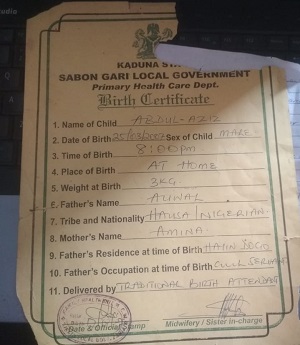 KADUNA STA
SABON GARI LOCAL GOVERNMENT
Primary Health Care Dept.
Birth Certificate
1. Name of Child ABDUL-AZIZ
2. Date of Birth Sex of Child MALE
3. Time of Birth 8:00pm
4. Place of Birth AT HOME
5. Weight at Birth 3KG
6. Father's Name
7. Tribe and Nationality HAUSA NIGERIAN
8. Mother's Name AMINA
9. Father's Residence at time of Birth
10. Father's Occupation at time of Birth CIVIL SERVANT
11. Delivered by TRADITIONAL BIRTH ATTENDANT
Date & Official Stamp Midwifery / Sister in-charge